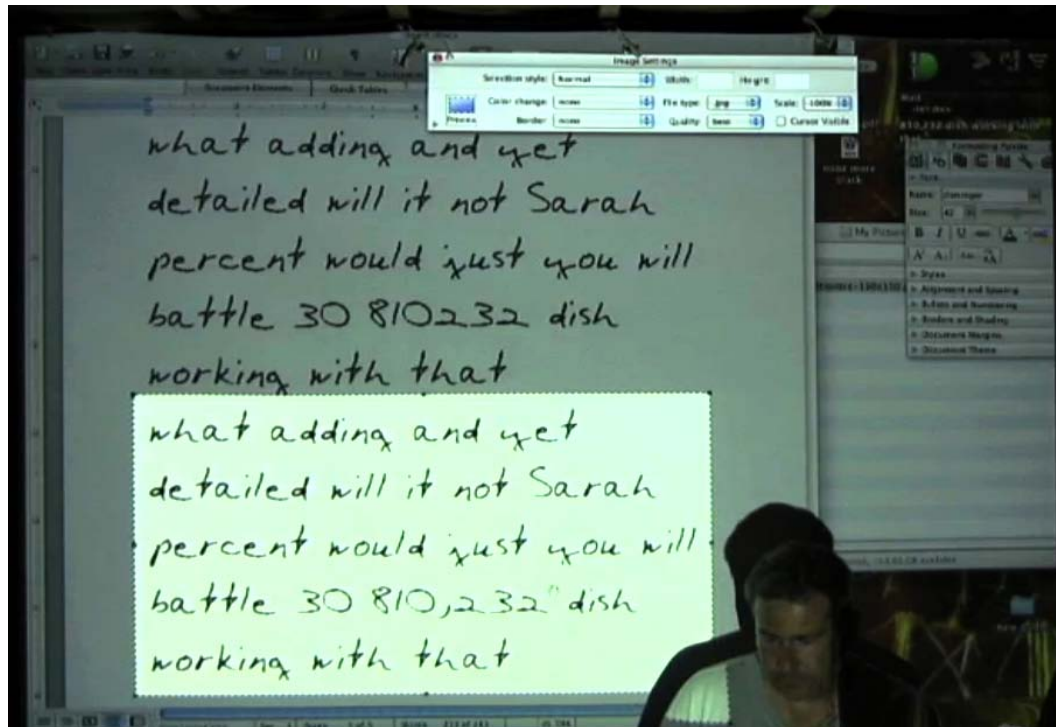 Image Settings
Selection style: Normal Width: Height:
Color change: none File type: .jpg Scale: 100%
Preview Border: none Quality: best Cursor Visible
Document Elements Quick Tables
what adding and yet
detailed will it not Sarah
percent would just you will
battle 30 810232 dish
working with that
what adding and yet
detailed will it not Sarah
percent would just you will
battle 30 810,232" dish
working with that
Formatting Palette
Font
Name:
Size: 42
B I U
Styles
Alignment and Spacing
Bullets and Numbering
Borders and Shading
Document Margins
Document Theme
My Pictures